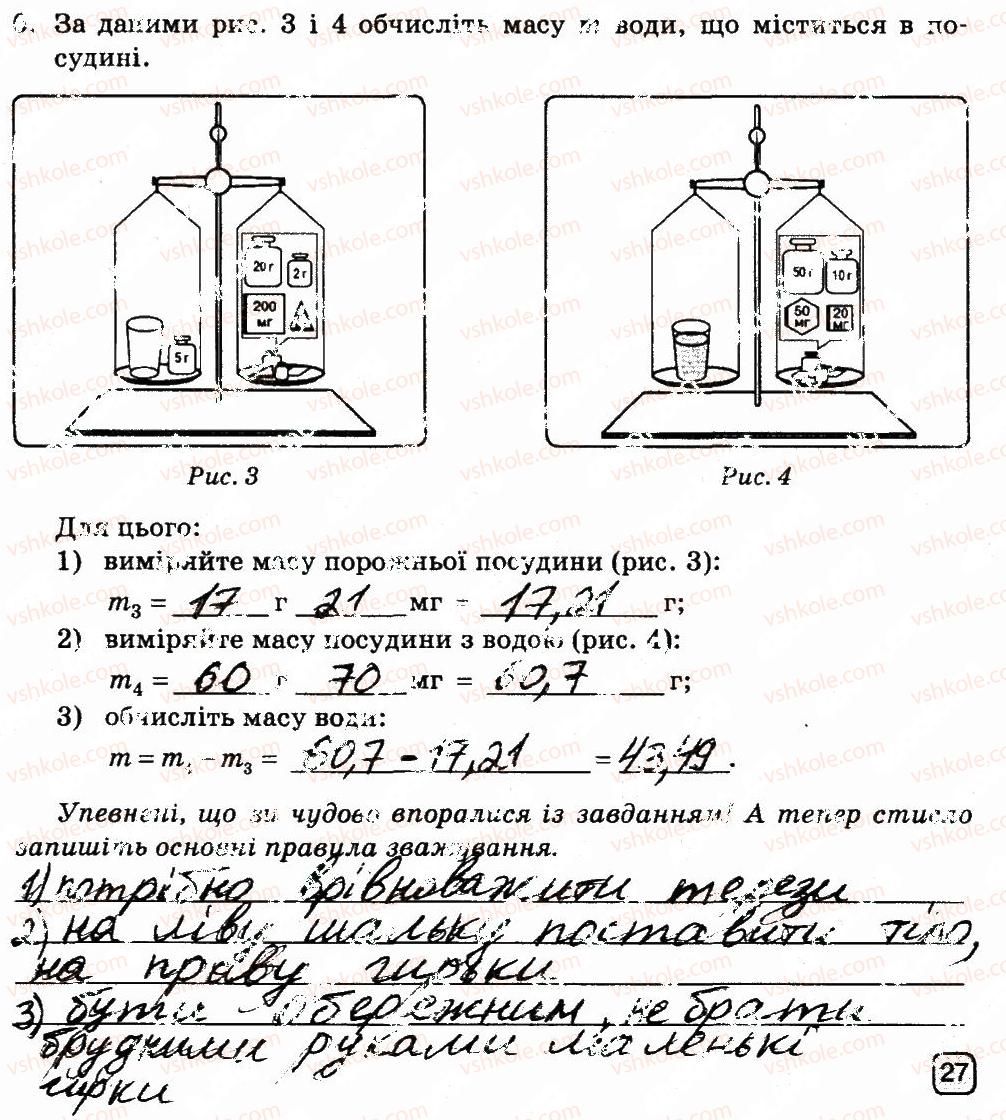 6. За даними рис. 3 і 4 обчисліть масу m води, що міститься в по-
судині.
20 г
2 г
200 мг
5 г
50 г
10 г
50 мг
20 мг
Рис. 3
Рис. 4
Для цього:
1) виміряйте масу порожньої посудини (рис. 3):
m₃ = 17 г 21 мг = 17,21 г;
2) виміряйте масу посудини з водою (рис. 4):
m₄ = 60 г 70 мг = 60,7 г;
3) обчисліть масу води:
m = m₄ - m₃ = 60,7 - 17,21 = 43,49.
Упевнені, що ви чудово впоралися із завданням! А тепер стисло
запишіть основні правила зважування.
1) потрібно врівноважити терези
2) на ліву шальку поставити тіло,
на праву гирьки
3) бути обережним, не брати
брудними руками маленькі
гирки
27
vshkole.com